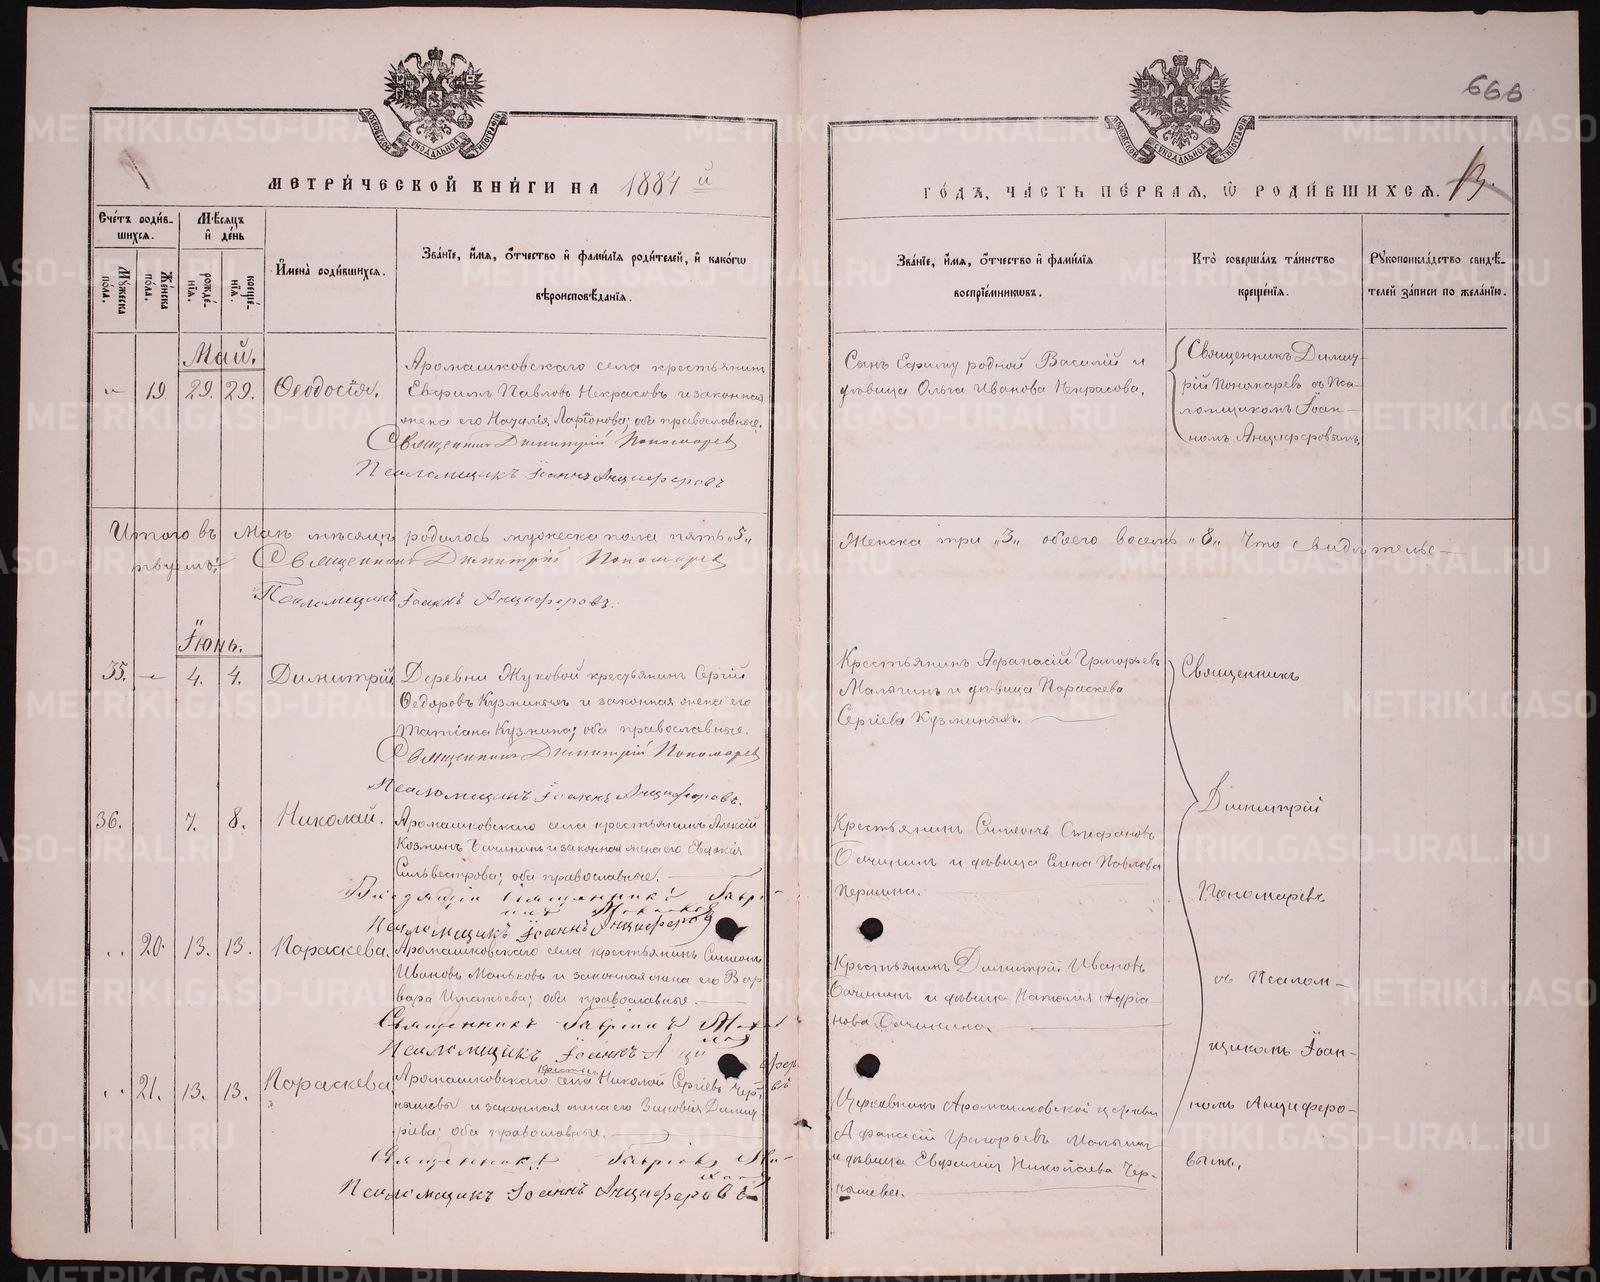 666
МОСКОВСКОЙ СѴНОДАЛЬНОЙ ТИПОГРАФІИ
МОСКОВСКОЙ СѴНОДАЛЬНОЙ ТИПОГРАФІИ
МЕТРИ́ЧЕСКОЙ КНИ́ГИ НА 1884 й
ГО́ДА, ЧА́СТЬ ПЕ́РВАЯ, Ѡ РОДИ́ВШИХСЯ.
Сче́тъ роди́в-
шихся.
Мѣ́сяцъ
и де́нь
Му́жеска
по́ла.
Же́нска
по́ла.
рожде́-
нїя.
креще́-
нїя.
Имена̀ роди́вшихся.
Зва́нїе, и́мя, о́тчество и фами́лїя роди́телей, и како́гѡ
вѣроисповѣ́данїя.
Зва́нїе, и́мя, о́тчество и фами́лїя
воспрїе́мникѡвъ.
Кто̀ соверша́лъ та́инство
креще́нїя.
Рꙋкоприкла́дство свидѣ́-
телей за́писи по жела́нїю.
Май.
19. 29. 29. Ѳеодосія.
Аромашковскаго села крестьянин
Евфимъ Павловъ Некрасовъ и законная
жена его Наталія Ларіонова; оба православные.
Священникъ Димитрій Пономарев
Псаломщикъ Іоаннъ Анциферовъ
Сынъ Ефиму родной Василій и
дѣвица Ольга Иванова Некрасова.
Священникъ Димит-
рій Пономаревъ съ Пса-
ломщикомъ Іоан-
номъ Анциферовымъ
Итого въ Маѣ мѣсяцѣ родилось мужеска пола пять „5„
Женска три „3„ обоего восемь „8„ Что свидѣтельс-
твуемъ: Священникъ Димитрій Пономарев
Псаломщикъ Іоаннъ Анциферовъ.
Іюнь.
35. 4. 4. Димитрій
Деревни Жуковой крестьянинъ Сергій
Ѳедоровъ Кузминыхъ и законная жена его
Татіана Кузмина; оба православные.
Священникъ Димитрій Пономарев
Псаломщикъ Іоаннъ Анциферовъ.
Крестьянинъ Афанасій Григорьевъ
Малыгинъ и дѣвица Параскева
Сергіева Кузминыхъ.
Священникъ
Димитрій
Пономаревъ
съ Псалом-
щикомъ Іоан-
номъ Анциферо-
вымъ.
36. 7. 8. Николай.
Аромашковскаго села крестьянинъ Алексій
Козминъ Бачининъ и законная жена его Евдокія
Сильвестрова; оба православные.
Псаломщикъ Іоаннъ Анциферов
Крестьянинъ Симеонъ Стефановъ
Бачининъ и дѣвица Елена Павлова
Пермина.
20. 13. 13. Параскева.
Аромашковскаго села крестьянинъ Симеонъ
Ивановъ Маньковъ и законная жена его Вар
вара Игнатьева; оба православные.
Священникъ Гавріилъ
Псаломщикъ Іоаннъ Анциферовъ
Крестьянинъ Димитрій Ивановъ
Бачининъ и дѣвица Наталія Адріа-
нова Бачинина
21. 13. 13. Параскева
Аромашковскаго села Николай Сергіевъ Чер-
нышевъ и законная жена его Зиновія Димит
ріева; оба православные.
Священникъ Гавріилъ
Псаломщикъ Іоаннъ Анциферовъ
Церковникъ Аромашковской церкви
Афанасій Григорьевъ Малыгинъ
и дѣвица Евфимія Николаева Чер-
нышева.
METRIKI.GASO-URAL.RU